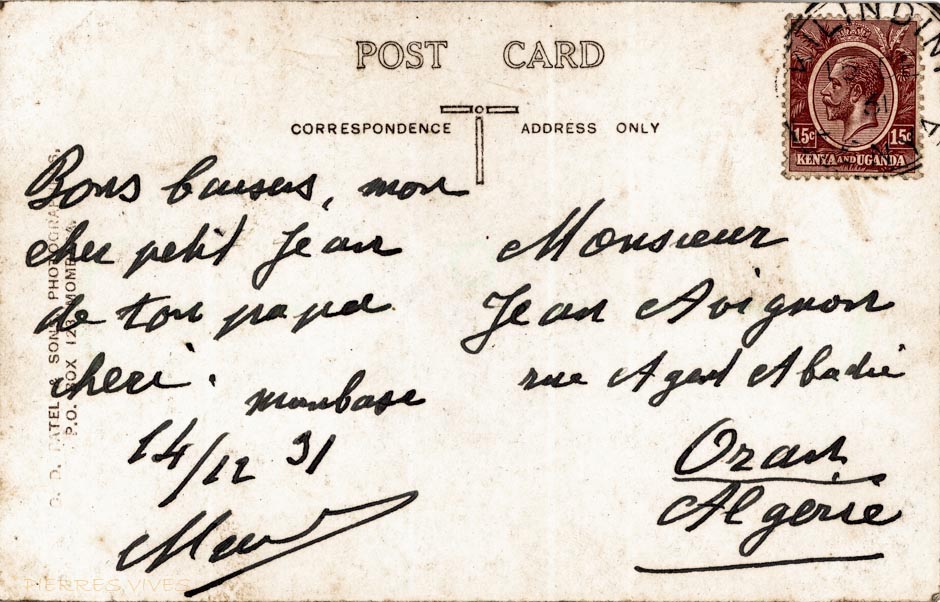 POST CARD
CORRESPONDENCE ADDRESS ONLY
KILINDINI
15c 15c
KENYA AND UGANDA
Bons baisers, mon
cher petit Jean
de ton papa
cheri.
monbase
14/12 31
Monsieur
Jean Avignon
rue Agent Abadie
Oran
Algérie
C. D. PATEL & SONS PHOTOGRAPHERS.
P.O. BOX MOMBASA
PIERRES VIVES